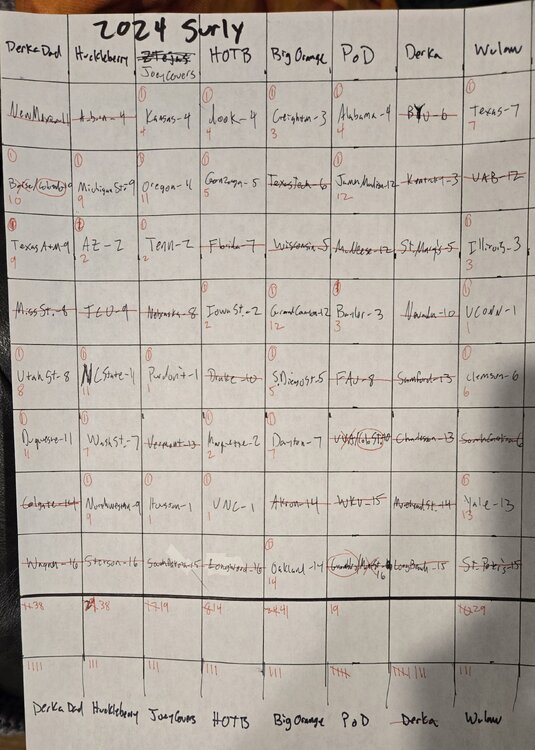 2024 Surly
Derka Dad Huckleberry JoeyCovers HOTB Big Orange PoD Derka Wulaw
① ① ① ① ①
New Mexico-11 Auburn-4 Kansas-4 Creighton-3 Alabama-4 BYU-6 Texas-7
4 4 3 4 7
① ① ① ① ①
Boise/Colorado Michigan St-9 Oregon-4 Gonzaga-5 Texas Tech-6 James Madison-12 Kentucky-3 UAB-12
10 9 11 5 12
Texas A+M-9 AZ-2 Tenn-2 Florida-7 Wisconsin-5 McNeese-12 St. Mary's-5 Illinois-3
9 2 2 3
Miss St.-8 TCU-9 Nebraska-8 Iowa St.-2 Grand Canyon-12 Baylor-3 Nevada-10 UCONN-1
2 12 3 1
Utah St-8 NC State-11 Purdon't-1 Drake-10 S.Diego St.5 FAU-8 Samford-13 Clemson-6
8 11 1 5 6
Duquesne-11 Wash St.-7 Vermont-13 Marquette-2 Dayton-7 UVA/Colo St.10 Charleston-13 South Carolina-6
11 7 2 7
Colgate-14 Northwestern-9 Houston-1 UNC-1 Akron-14 WKU-15 Morehead St.-14 Yale-13
9 1 1 13
Wagner-16 Stetson-16 Longwood-16 Oakland-14 Long Beach-15 St. Peter's-15
14 16
38 38 19 14 41 19 29
Derka Dad Huckleberry JoeyCovers HOTB Big Orange PoD Derka Wulaw